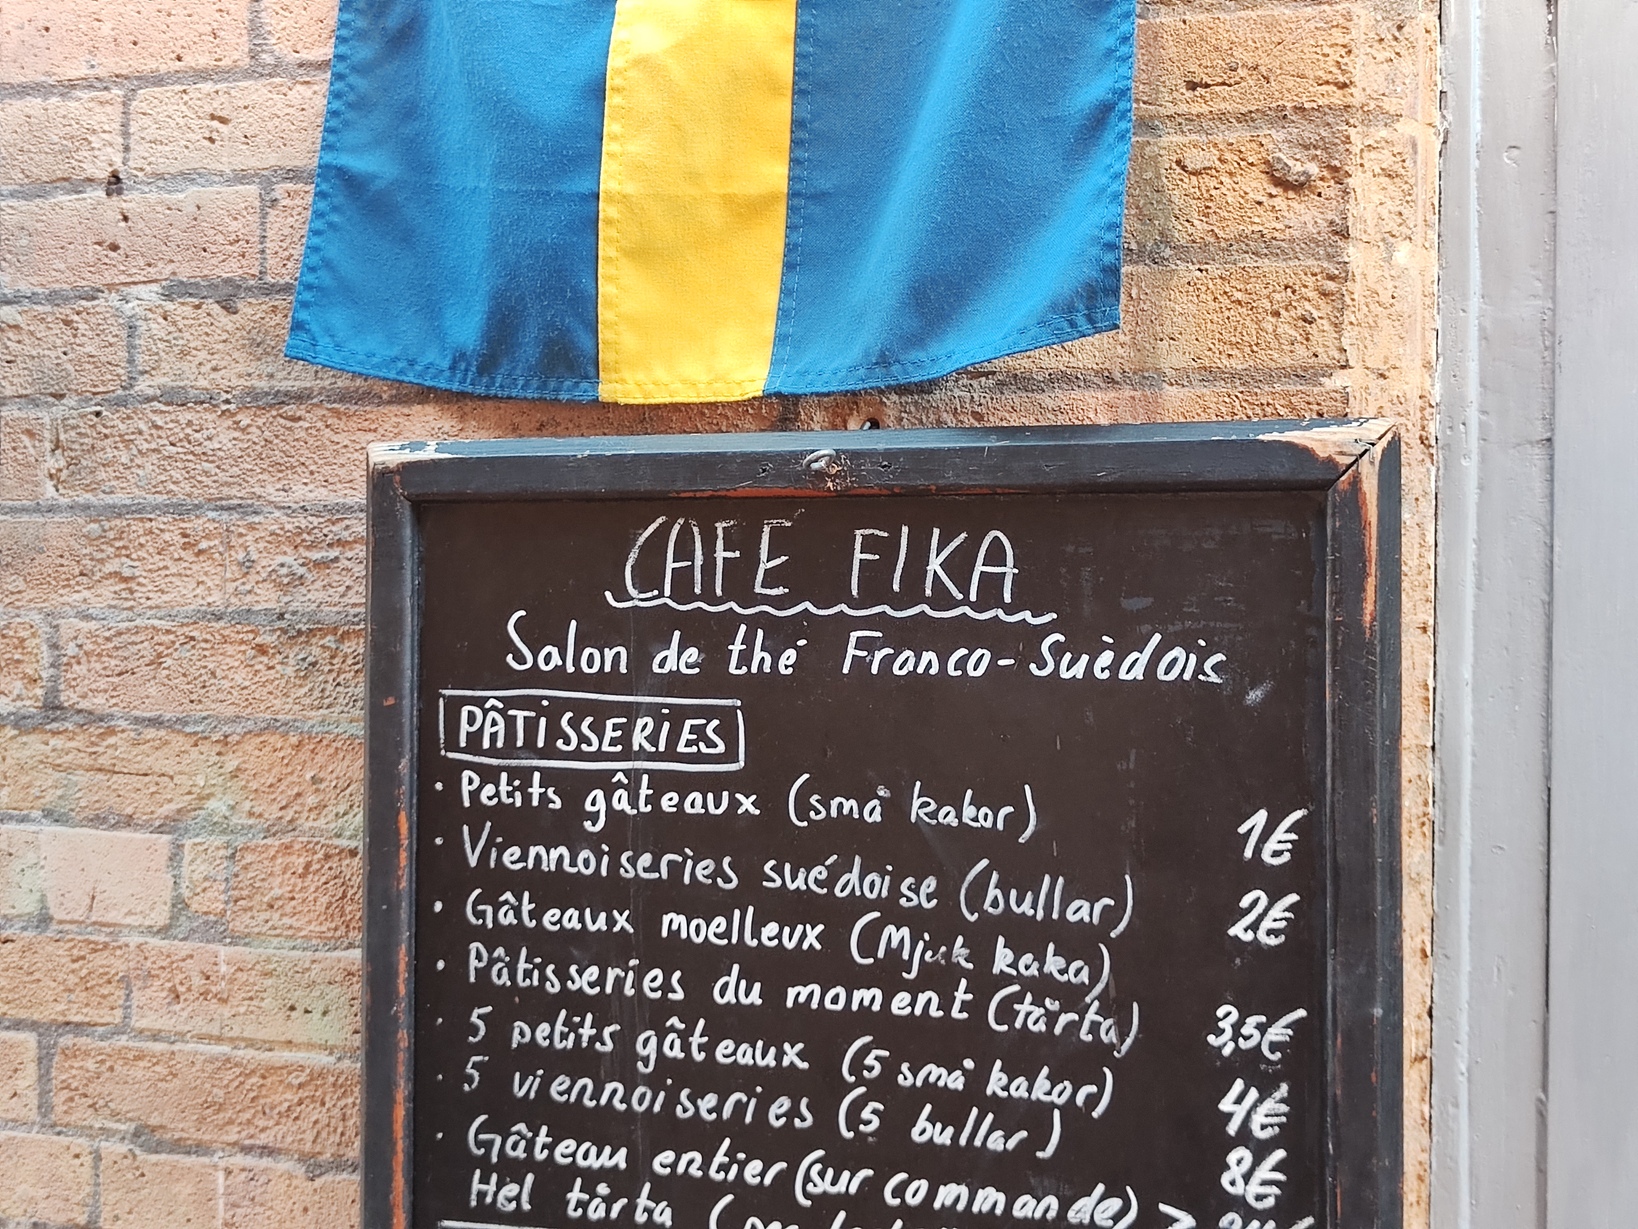 CAFÉ FIKA
Salon de thé Franco-Suèdois
PÂTISSERIES
• Petits gâteaux (små kakor) 1€
• Viennoiseries suédoise (bullar) 2€
• Gâteaux moelleux (Mjuk kaka)
• Pâtisseries du moment (tårta) 3,5€
• 5 petits gâteaux (5 små kakor) 4€
• 5 viennoiseries (5 bullar) 8€
• Gâteau entier (sur commande) >
Hel tårta (